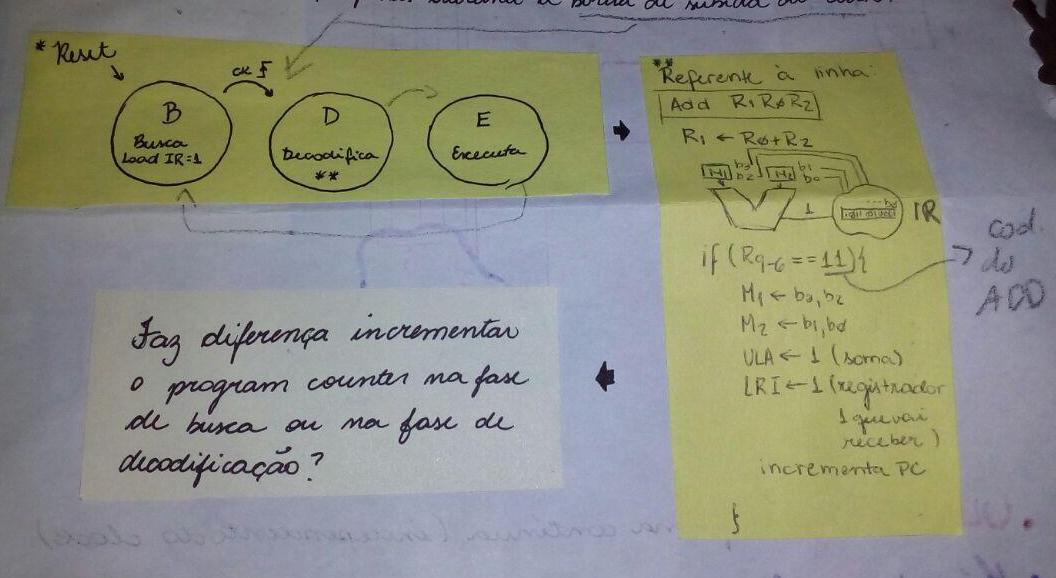 a borda de subida do clock.
* Reset
CK
B
Busca
Load IR=1
D
Decodifica
**
E
Executa
**
Referente à linha:
Add R1 RØ R2
R1 ← RØ+R2
M1 b3 M2 b1
b2 b0
1
IR
if (R9-6 == 11) {
cod.
do
ADD
M1 ← b3, b2
M2 ← b1, bø
ULA ← 1 (soma)
LRI ← 1 (registrador
1 que vai
receber)
incrementa PC
}
Faz diferença incrementar
o program counter na fase
de busca ou na fase de
decodificação?